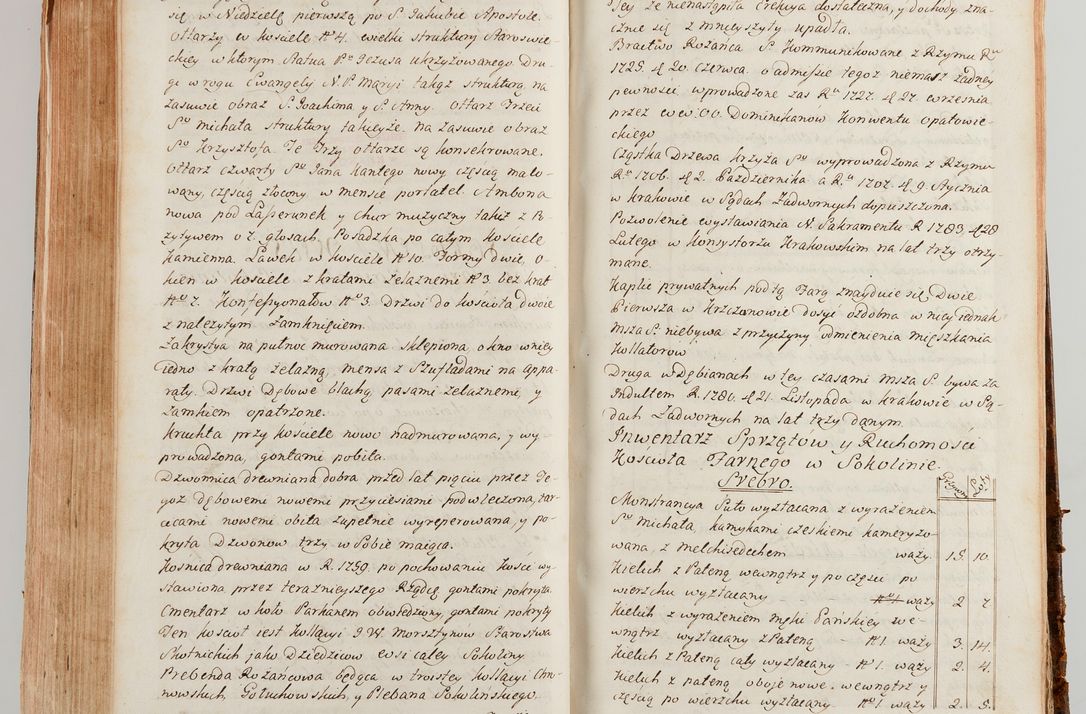 się w Niedzielę pierwszą po S. Jakubie Apostole.
Ołtarzy w kosciele No 4. wielki struktury Staroswie-
ckiey w ktorym Statua Pa Jezusa ukrzyżowanego Dru-
gi w rogu Ewangelij N. P. Maryi takąż strukturą, na
zasuwie obraz S. Joachima y S. Anny. Ołtarz Trzeci
So Michała struktury takieyże. na zasuwie obraz
So Krzysztofa. Te Trzy ołtarze są konsekrowane.
Ołtarz czwarty So Jana Kantego nowy częscią malo-
wany, częscią złocony w mensie portatel. Ambona
nowa pod Lasserunek y Chur muzyczny takiż z Po-
zytywem o 7. głosach. Posadzka po całym kosciele
kamienna. Ławek w kosciele No 10. Formy dwie, o-
kien w kosciele z kratami żelaznemi No 3. bez krat
No 7. Konfessyonałow No 3. Drzwi do kościoła dwoie
z nalezytym zamknięciem.
Zakrystya na pułnoc murowana sklepiona, okno w niey
iedno z kratą żelazną, mensa z Szufladami na appa-
raty. Drzwi Dębowe blachą, pasami żelaznemi, y
zamkiem opatrzone.
Kruchta przy kościele nowo nadmurowana, y wy-
prowadzona, gontami pobita.
Dzwonnica drewniana dobra przed lat pięciu przez Te-
goż dębowemi nowemi przyciesiami podwleczona, tar-
cicami nowemi obita zupełnie wyreperowana, y po-
kryta Dzwonow trzy w Sobie maiąca.
Kosnica drewniana w R. 1759. po pochowaniu kości wy-
stawiona przez teraznieyszego Rządcę gontami pokryta.
Cmentarz w koło Parkanem obwiedziony, gontami pokryty
Ten kościoł iest kollacyi JW Morsztynow Starostwa
Skotnickich jako Dziedzicow wsi całey Sokoliny
Prebenda Rożańcowa będąca w troistey kollacyi Chro-
nowskich, Gołuchowskich, y Plebana Sokolińskiego.
Tey że nienastąpiła Erekcya dostateczna, y dochody zna-
cznie się zmnieyszyły upadła.
Bractwo Rożańca S. kommunikowane z Rzymu Ru
1725. d 20. Czerwca. o admissie tegoż niemasz żadney
pewności wprowadzone zas Ru 1727. d 27. września
przez WW. OO. Dominikanów Konwentu Opatowie-
ckiego
Cząstka Drzewa krzyża So wyprowadzona z Rzymu
Ru 1706. d 2. Października a Ru 1707. d 9. Stycznia
w krakowie w Sądach Zadwornych dopuszczona.
Pozwolenie wystawiania N. Sakramentu R 1783. d 28
Lutego w Konsystorzu Krakowskim na lat trzy otrzy-
mane.
Kaplic prywatnych pod tą Farą znayduie się Dwie
Pierwsza w Krzczonowie dosyć ozdobna w niey iednak
Msza S. niebywa z przyczyny odmienienia mięszkania
Kollatorow
Druga w Dębianach w tey czasami Msza S. bywa za
Indultem R. 1780. d 21. Listopada w krakowie w Są-
dach Zadwornych na lat trzy danym
Inwentarz Sprzętow y Ruchomości
Kościoła Farnego w Sokolinie.
Srebro.
Grzywn Łot
Monstrancya Suto wyzłacana z wyrażeniem
So Michała, kamykami czeskiemi kameryzo-
wana, z Melchisedechem waży 15. 10
Kielich z Pateną wewnątrz y po części po
wierzchu wyzłacany No 1 waży 2 7
Kielich z wyrażeniem męki Pańskiey we-
wnątrz wyzłacany z Pateną No 1. waży 3. 14.
Kielich z Pateną cały wyzłacany No 1. waży 2. 4.
Kielich z pateną oboie nowe. wewnątrz y
częscią po wierzchu wyzłacany No 1 waży 2. 5.